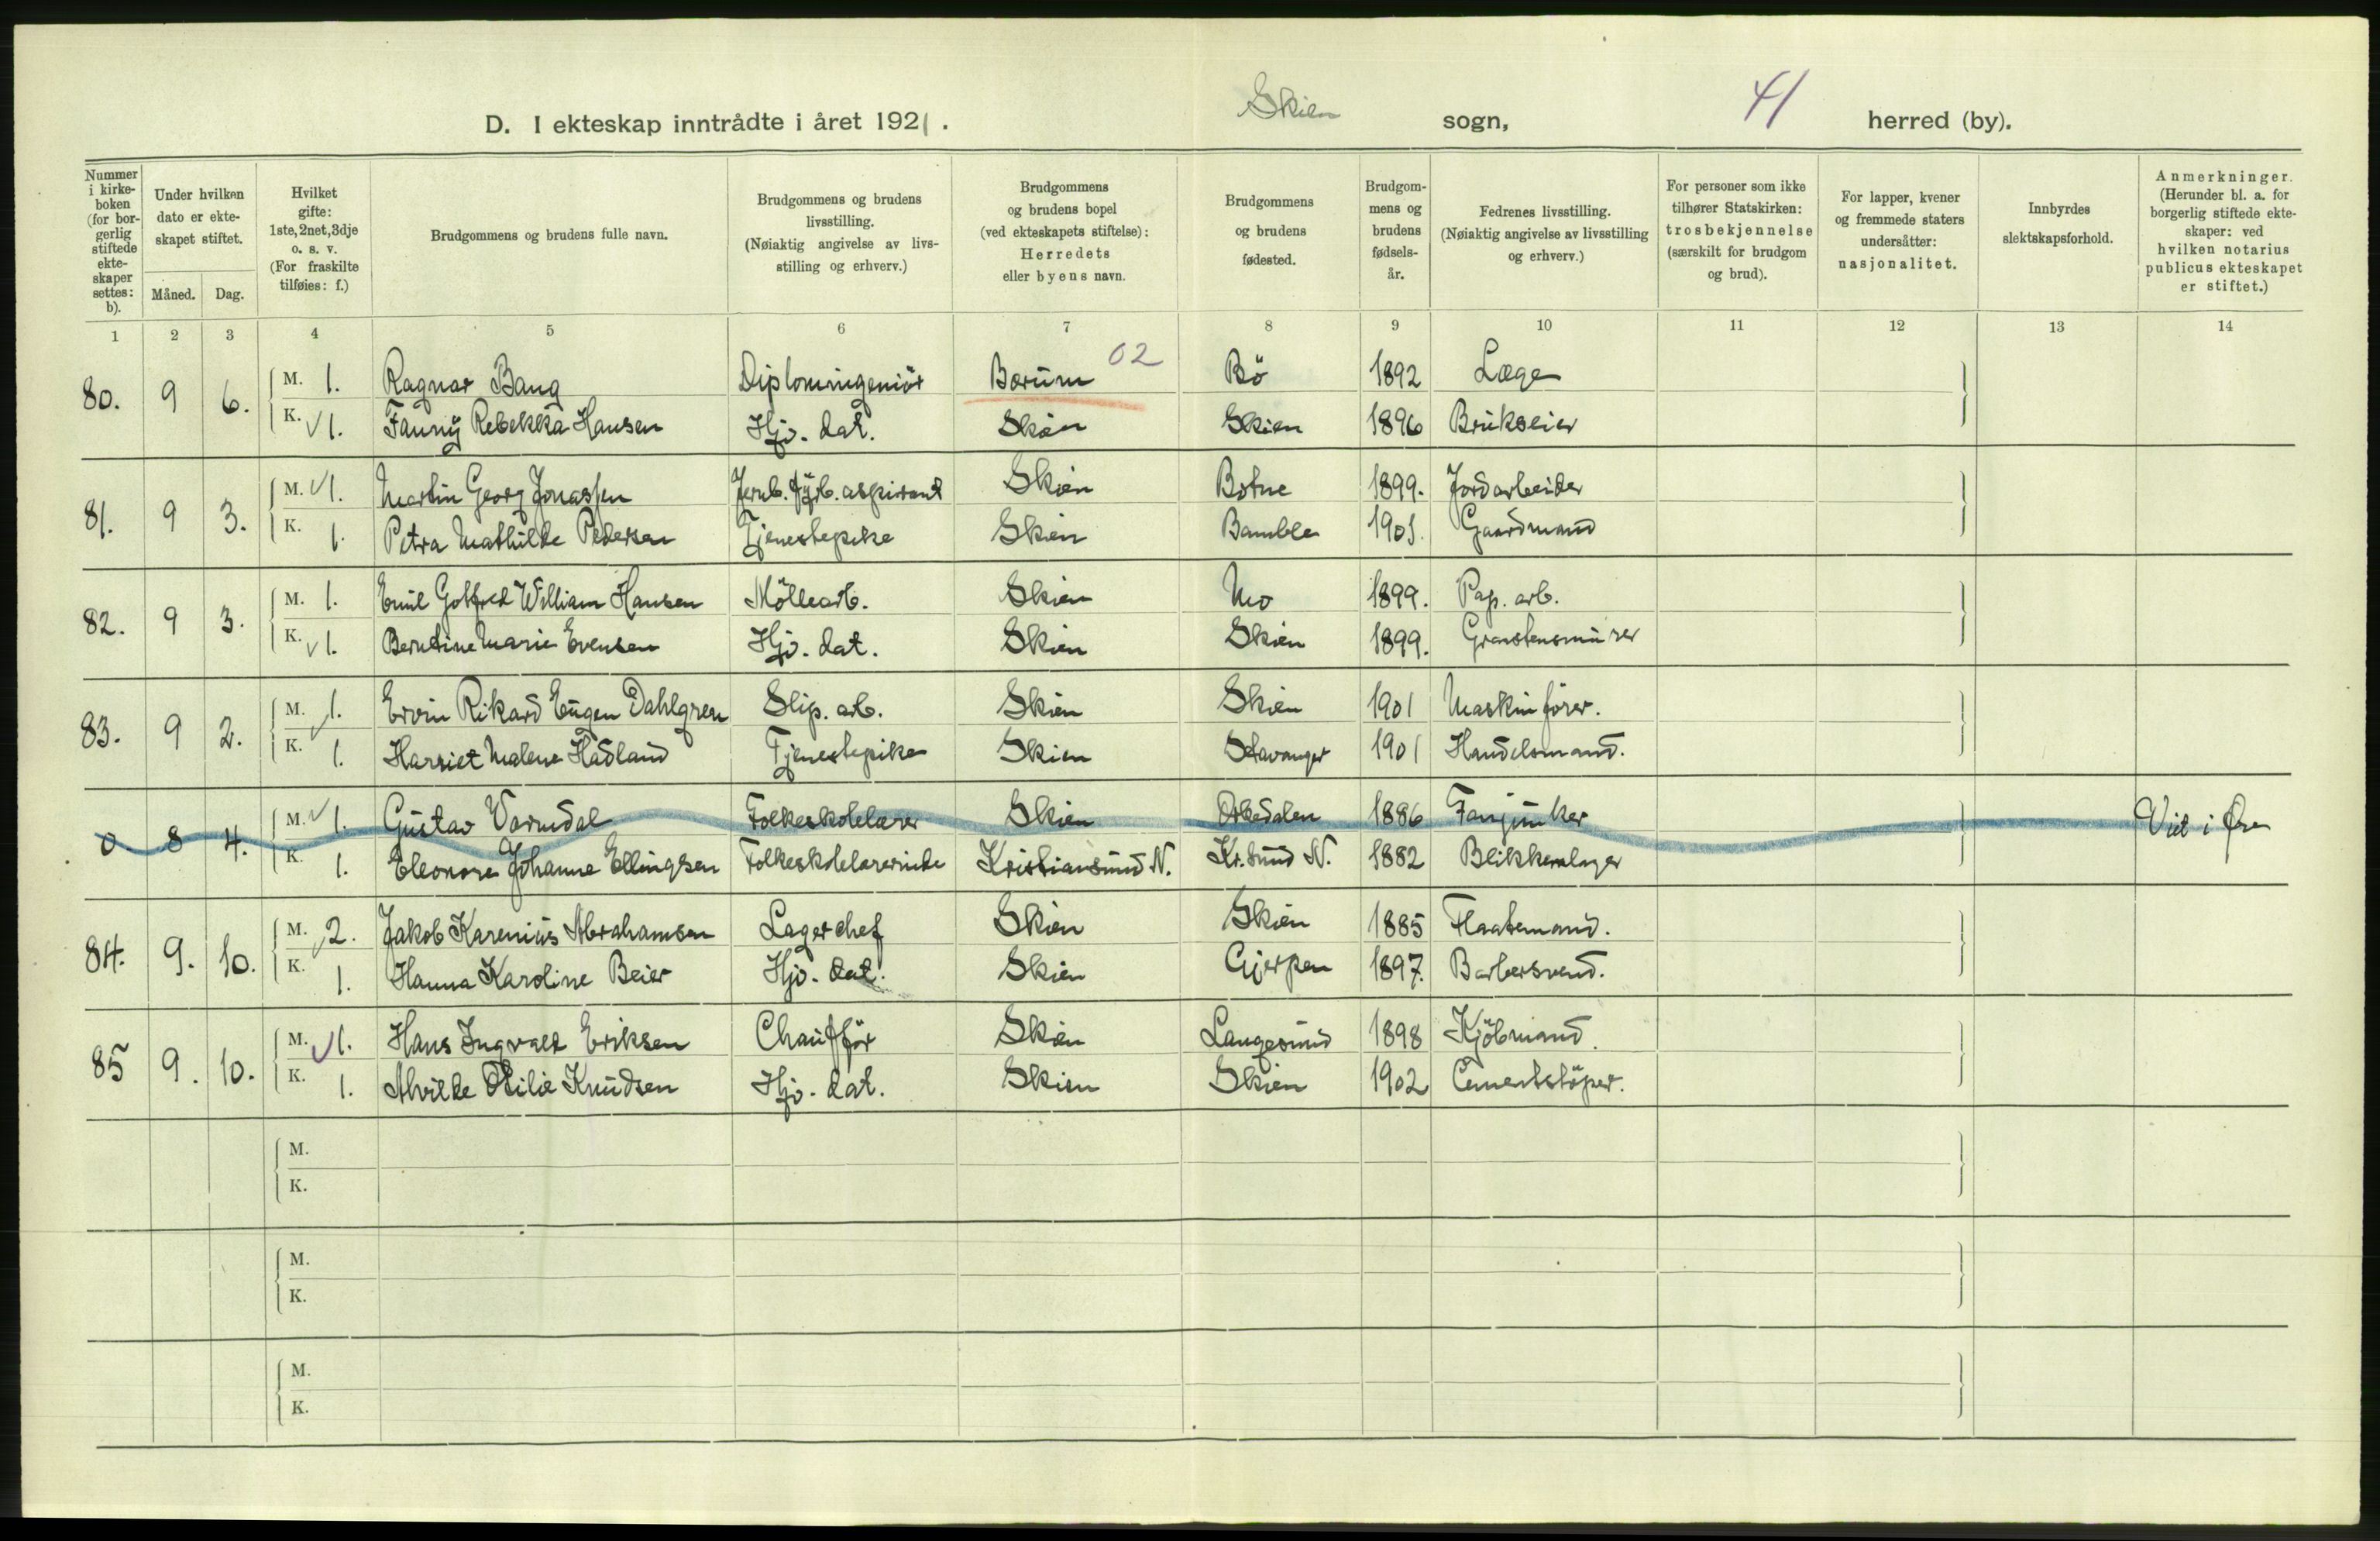 D. I ekteskap inntrådte i året 1921. Skien sogn, 41 herred (by).
Nummer i kirkeboken (for borgerlig stiftede ekteskaper settes: b).
Under hvilken dato er ekteskapet stiftet. Måned. Dag.
Hvilket gifte: 1ste, 2net, 3dje o. s. v. (For fraskilte tilføies: f.)
Brudgommens og brudens fulle navn.
Brudgommens og brudens livsstilling. (Nøiaktig angivelse av livsstilling og erhverv.)
Brudgommens og brudens bopel (ved ekteskapets stiftelse): Herredets eller byens navn.
Brudgommens og brudens fødested.
Brudgommens og brudens fødselsår.
Fedrenes livsstilling. (Nøiaktig angivelse av livsstilling og erhverv.)
For personer som ikke tilhører Statskirken: trosbekjennelse (særskilt for brudgom og brud).
For lapper, kvener og fremmede staters undersåtter: nasjonalitet.
Innbyrdes slektskapsforhold.
Anmerkninger. (Herunder bl. a. for borgerlig stiftede ekteskaper: ved hvilken notarius publicus ekteskapet er stiftet.)
1 2 3 4 5 6 7 8 9 10 11 12 13 14
02
80. 9 6. M. 1. Ragnar Bang Diplomingeniör Bærum Bö 1892 Læge
K. 1. Fanny Rebekka Hansen Hjv. dat. Skien Skien 1896 Brukseier
81. 9 3. M. 1. Martin Georg Jonassen Jernb. fyrb. aspirant Skien Botne 1899. Jordarbeider
K. 1. Petra Mathilde Pedersen Tjenestepike Skien Bamble 1901. Gaardmand
82. 9 3. M. 1. Emil Gotfred William Hansen Möllearb. Skien Mo 1899. Pap. arb.
K. 1. Berntine Marie Evensen Hjv. dat. Skien Skien 1899. Graastensmurer
83. 9 2. M. 1. Ervin Rikard Eugen Dahlgren Slip. arb. Skien Skien 1901 Maskinförer.
K. 1. Harriet Malene Hadland Tjenestepike Skien Stavanger 1901 Handelsmand.
0 8 4. M. 1. Gustav Varmdal Folkeskolelærer Skien Orkedalen 1886 Fanjunker Viet i Øre
K. 1. Eleonore Johanne Ellingsen Folkeskolelærerinde Kristiansund N. Kr.sund N. 1882 Blikkenslager
84. 9. 10. M. 2. Jakob Karenius Abrahamsen Lagerchef Skien Skien 1885 Flaatemand.
K. 1. Hanna Karoline Beier Hjv. dat. Skien Gjerpen 1897. Barbersvend.
85 9. 10. M. 1. Hans Ingvald Eriksen Chaufför Skien Langesund 1898 Kjöbmand.
K. 1. Alvilde Otilie Knudsen Hjv. dat. Skien Skien 1902 Cementstöper.
M.
K.
M.
K.
M.
K.